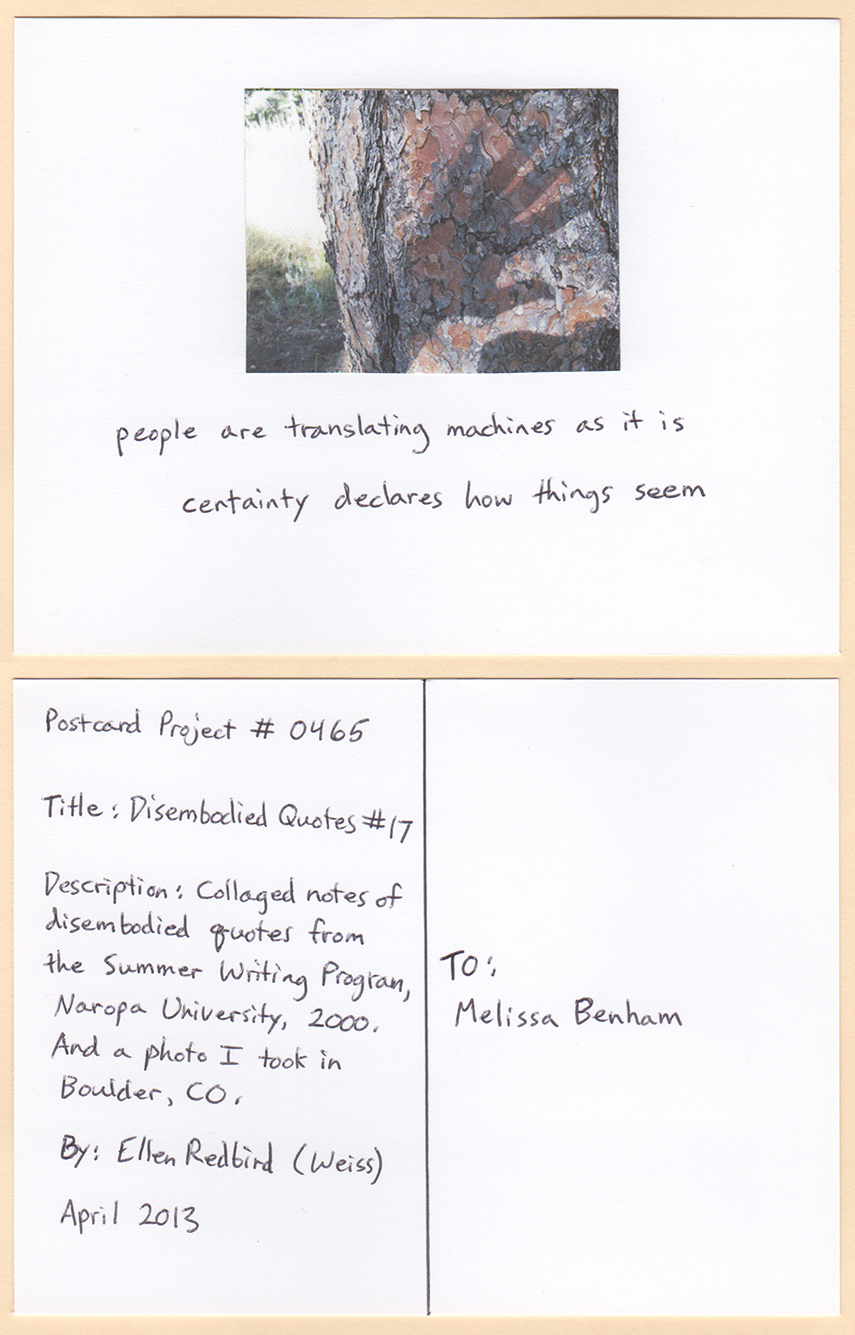 people are translating machines as it is
certainty declares how things seem
Postcard Project # 0465
Title: Disembodied Quotes #17
Description: Collaged notes of
disembodied quotes from
the Summer Writing Program,
Naropa University, 2000.
And a photo I took in
Boulder, CO.
By: Ellen Redbird (Weiss)
April 2013
TO:
Melissa Benham